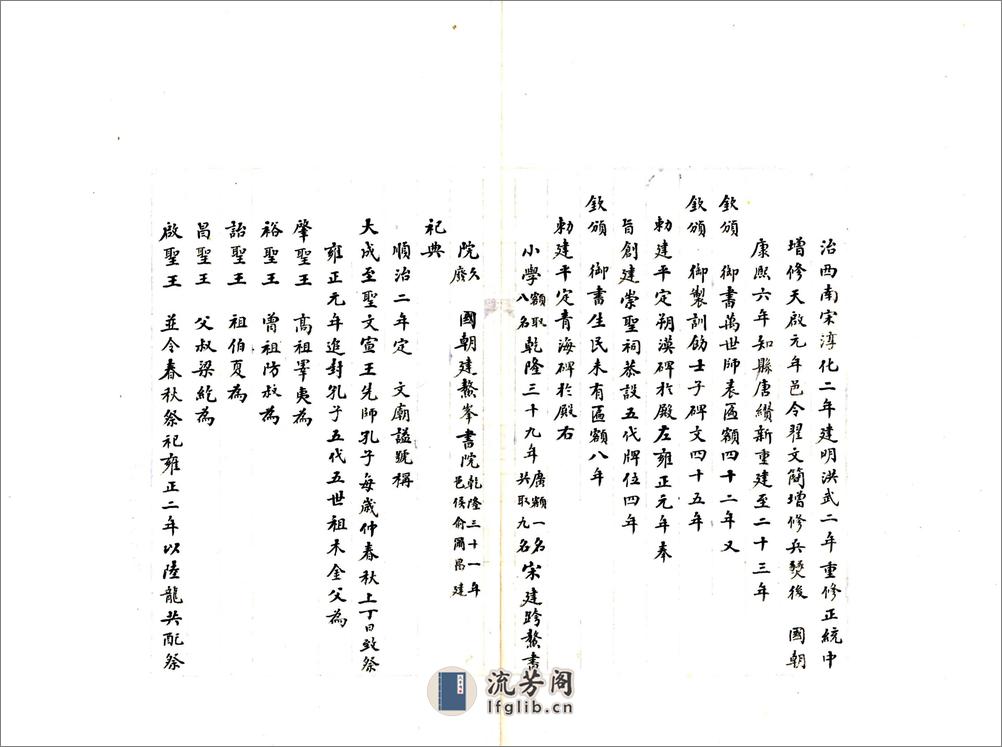 治西南宋淳化二年建明洪武二年重修正統中
增修天啟元年邑令翟文簡增修兵燹後　國朝
康熙六年知縣唐纘新重建至二十三年
欽頒　御書萬世師表匾額四十二年又
欽頒　御製訓飭士子碑文四十五年
勅建平定朔漠碑於殿左雍正元年奉
旨創建崇聖祠恭設五代牌位四年
欽頒　御書生民未有匾額八年
勅建平定青海碑於殿右
小學額取八名乾隆三十九年廣額一名共取九名宋建跨鰲書
院久廢　國朝建鰲峯書院乾隆三十一年邑侯俞爾昌建
祀典
順治二年定　文廟謚號稱
大成至聖文宣王先師孔子每歲仲春秋上丁日致祭
雍正元年追封孔子五代五世祖木金父為
肇聖王　高祖睪夷為
裕聖王　曾祖防叔為
詒聖王　祖伯夏為
昌聖王　父叔梁紇為
啟聖王　並令春秋祭祀雍正二年以陸龍共配祭
流芳阁
lfglib.cn